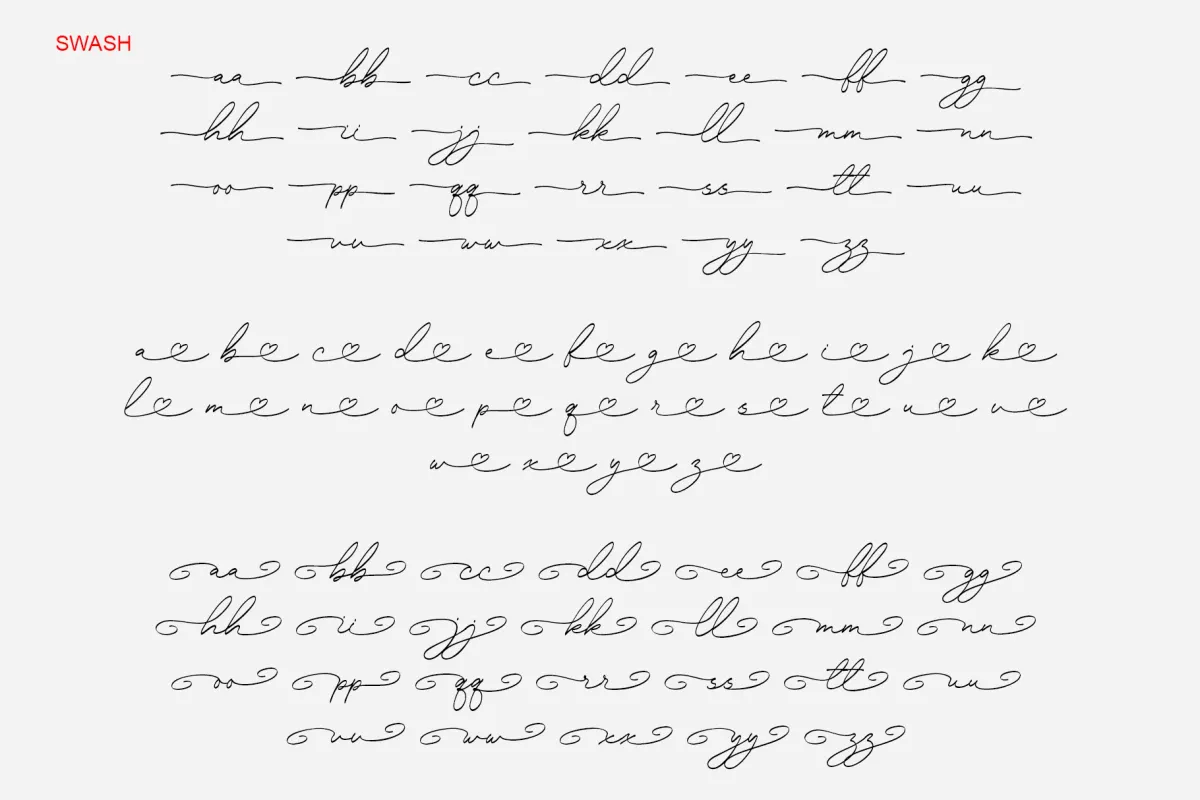 SWASH
aa bb cc dd ee ff gg
hh ii jj kk ll mm nn
oo pp qq rr ss tt uu
vv ww xx yy zz
a b c d e f g h i j k
l m n o p q r s t u v
w x y z
aa bb cc dd ee ff gg
hh ii jj kk ll mm nn
oo pp qq rr ss tt uu
vv ww xx yy zz